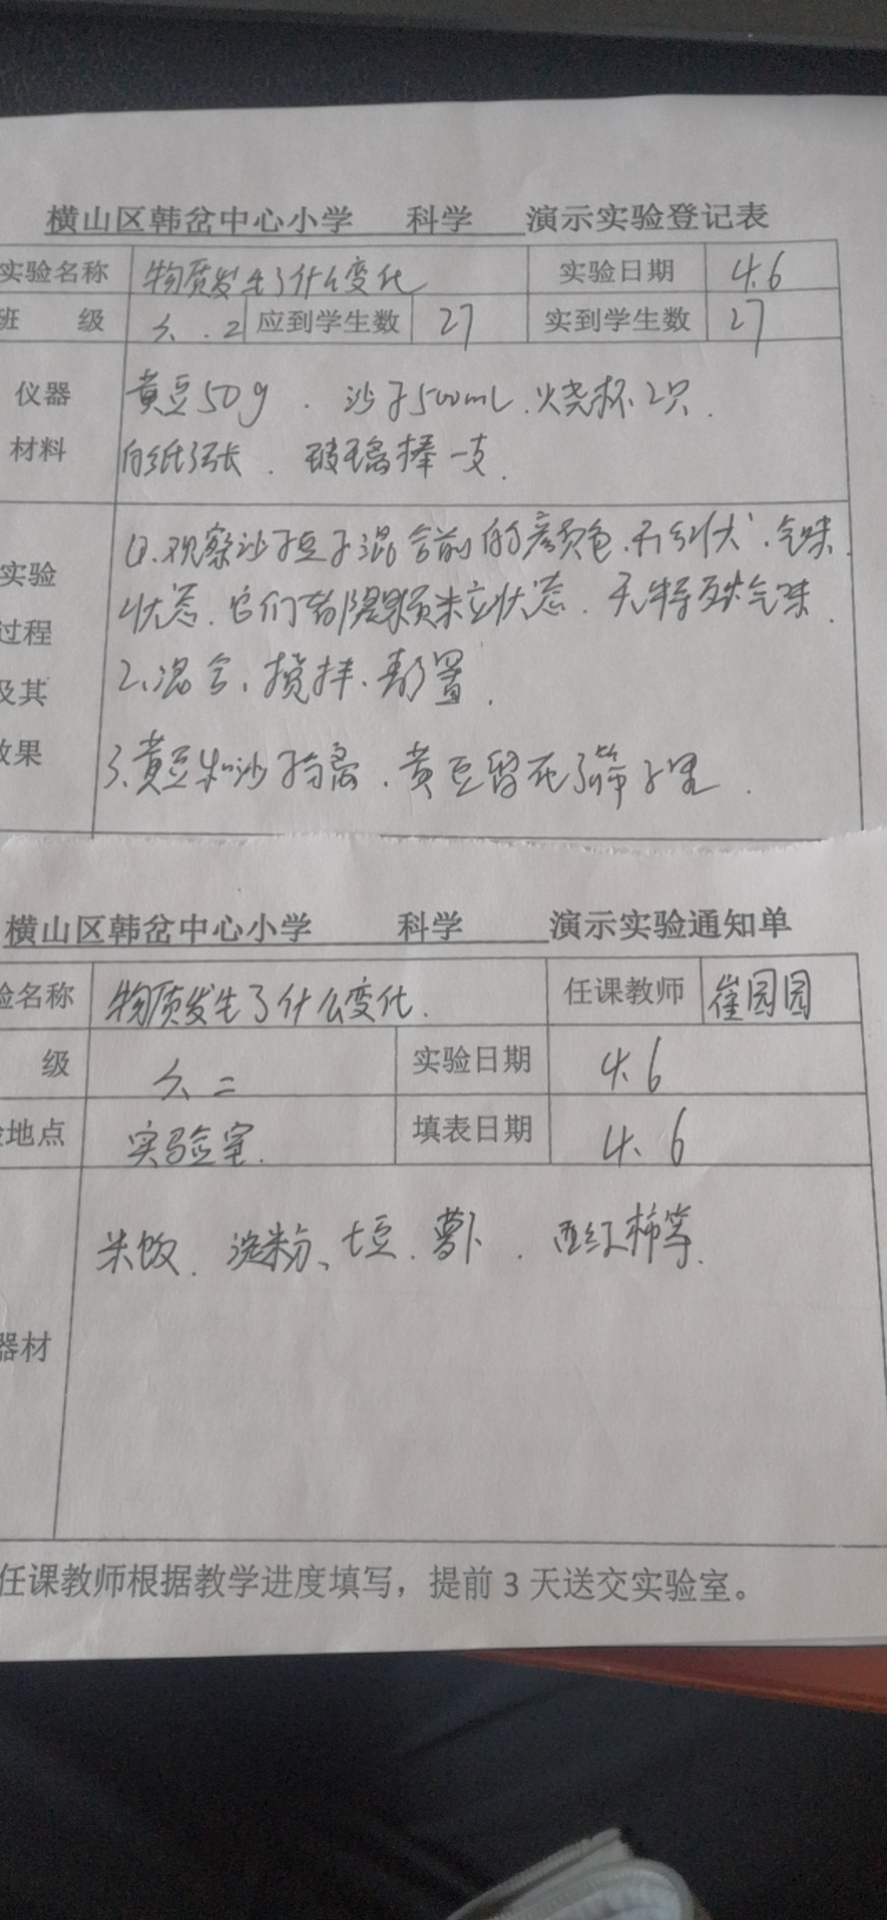 横山区韩岔中心小学 科学 演示实验登记表
实验名称 物质发生了什么变化 实验日期 4.6
班 级 六.二 应到学生数 27 实到学生数 27
仪器 黄豆50g. 沙子500mL.烧杯2只.
材料 白纸3张. 玻璃棒一支.
1.观察沙子豆子混合前的颜色.形状.气味.
实验
状态.它们都是颗粒状态.无特殊气味.
过程
2、混合、搅拌、静置.
及其
效果 3.黄豆和沙子分离.黄豆留在了筛子里.
横山区韩岔中心小学 科学 演示实验通知单
验名称 物质发生了什么变化. 任课教师 崔园园
级 六二 实验日期 4.6
验地点 实验室. 填表日期 4.6
米饭. 淀粉、土豆.萝卜. 西红柿等.
器材
任课教师根据教学进度填写，提前3天送交实验室。